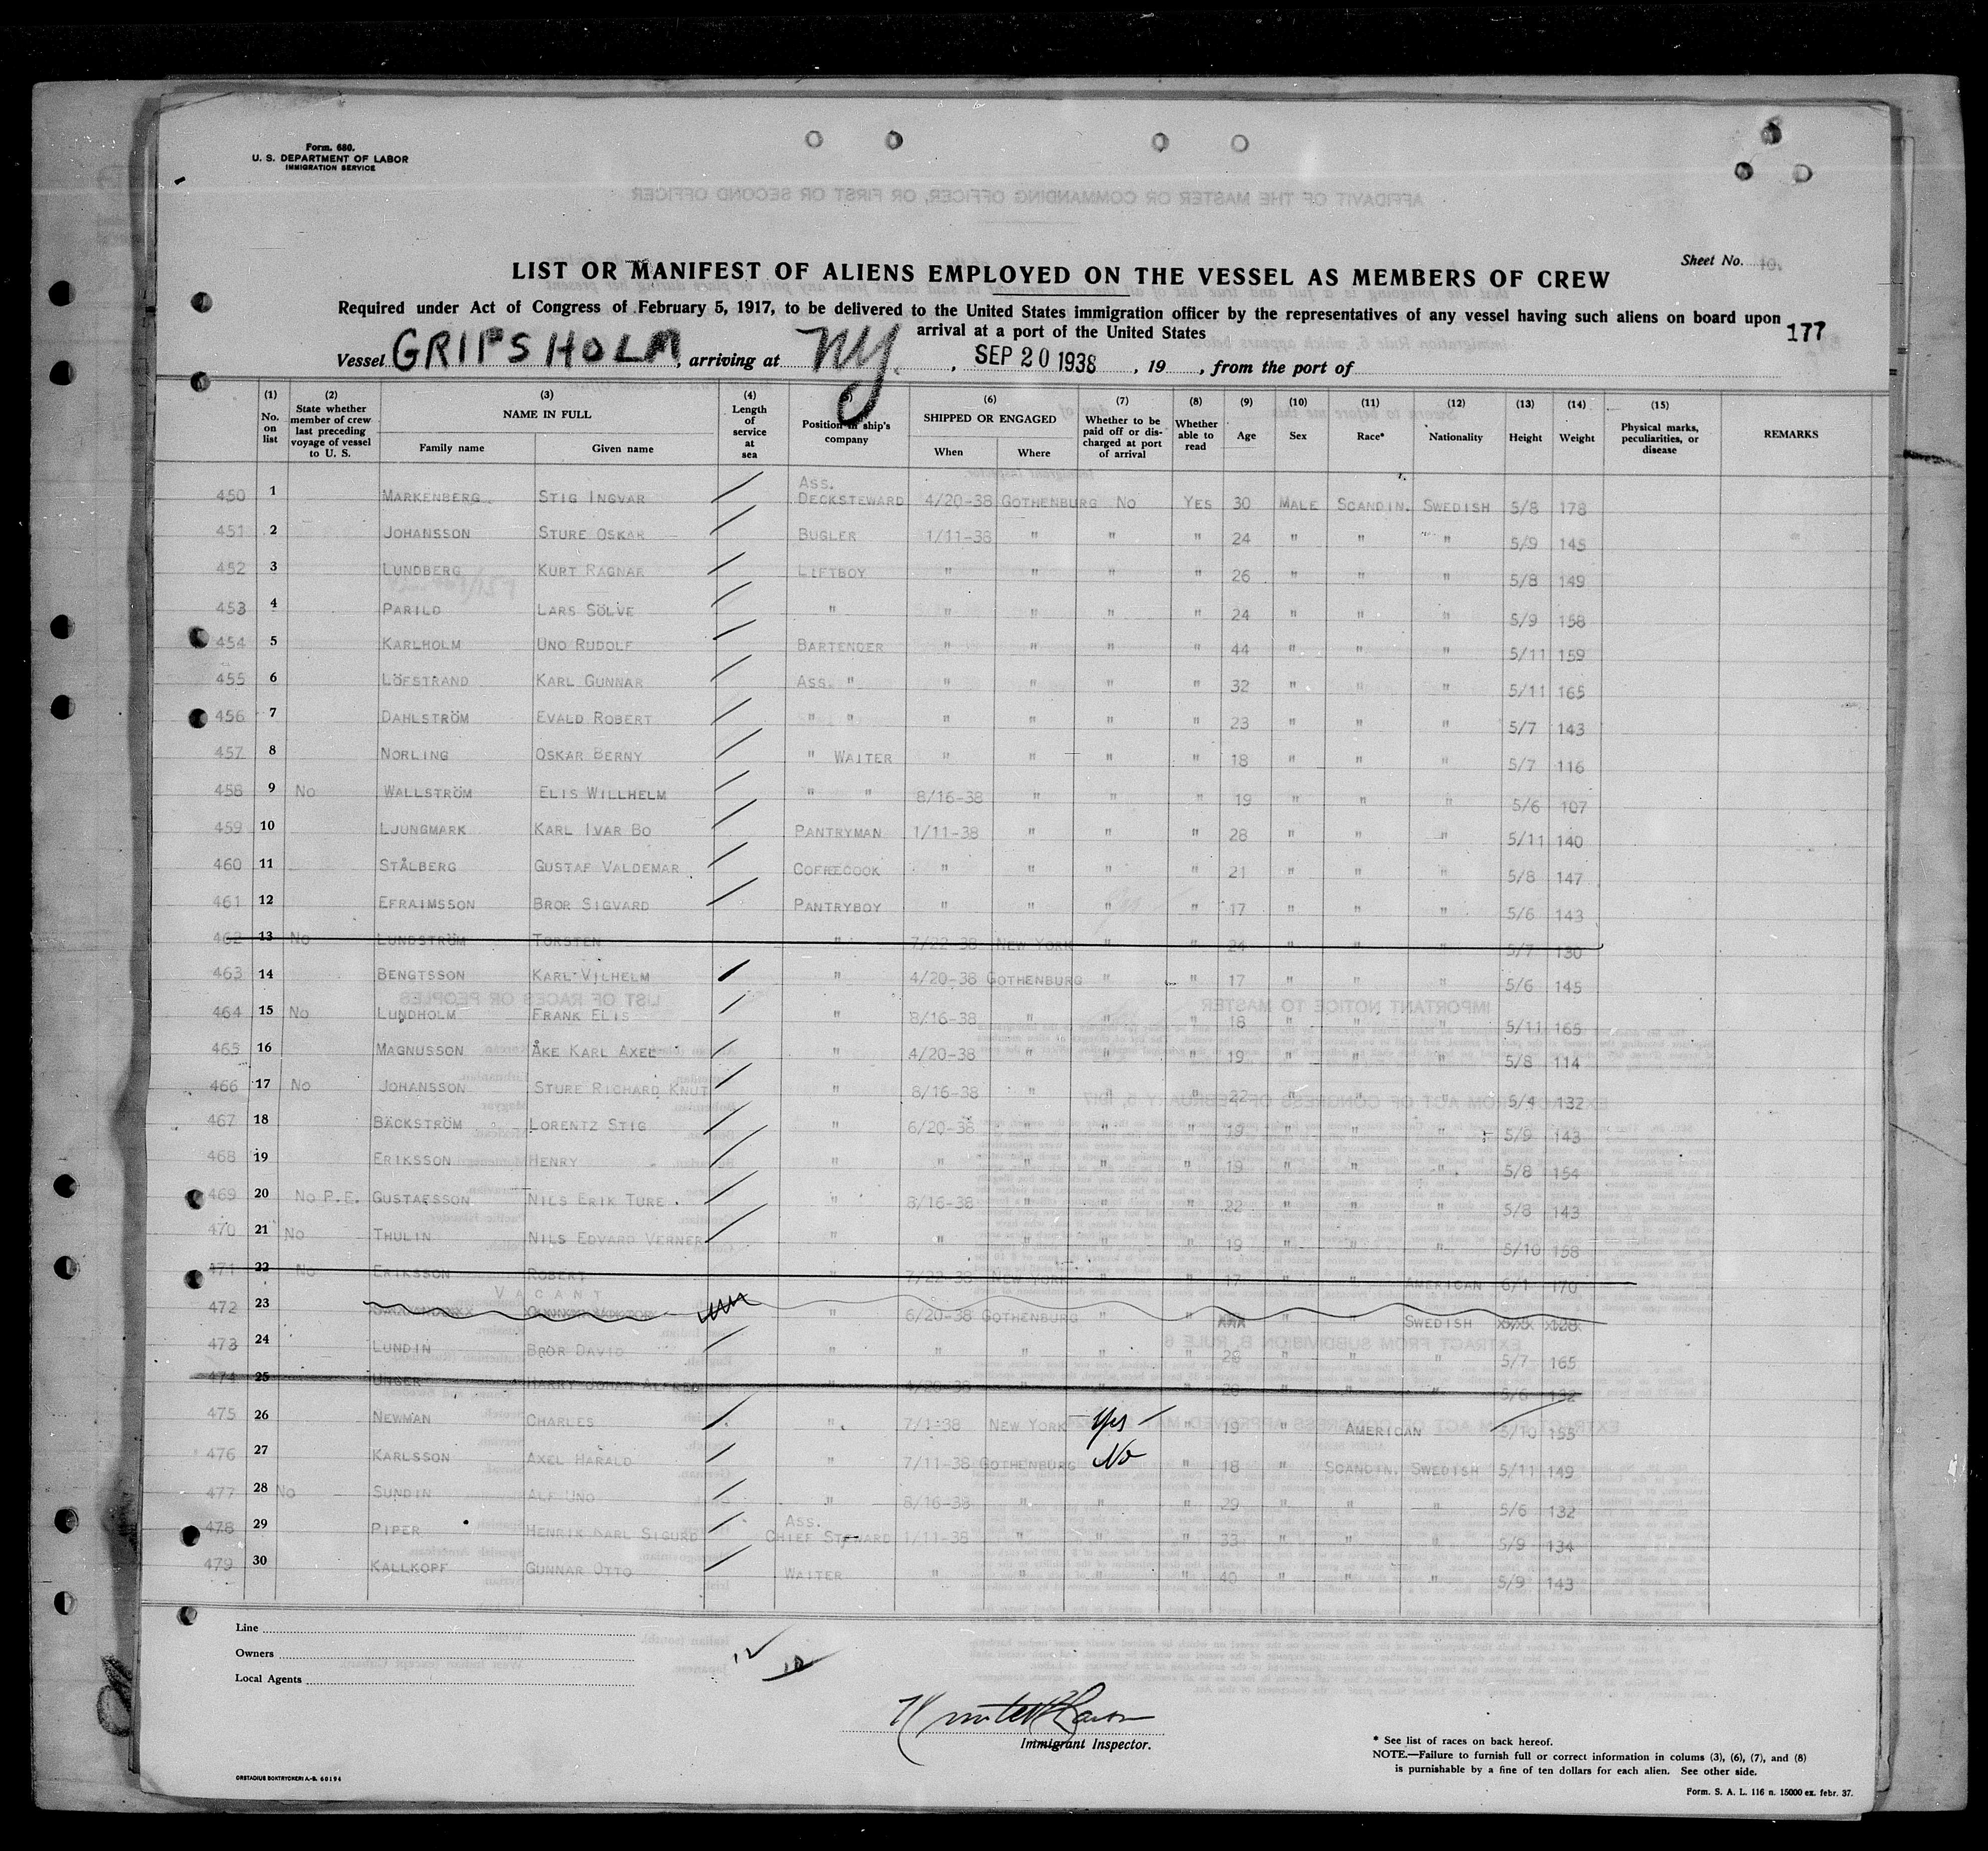 Form. 680.
U. S. DEPARTMENT OF LABOR
IMMIGRATION SERVICE
Sheet No.
LIST OR MANIFEST OF ALIENS EMPLOYED ON THE VESSEL AS MEMBERS OF CREW
Required under Act of Congress of February 5, 1917, to be delivered to the United States immigration officer by the representatives of any vessel having such aliens on board upon
arrival at a port of the United States
177
Vessel GRIPSHOLM, arriving at NY. , SEP 20 1938 , 19 , from the port of
(1) No. on list (2) State whether member of crew last preceding voyage of vessel to U. S. (3) NAME IN FULL Family name Given name (4) Length of service at sea Position in ship's company (6) SHIPPED OR ENGAGED When Where (7) Whether to be paid off or discharged at port of arrival (8) Whether able to read (9) Age (10) Sex (11) Race* (12) Nationality (13) Height (14) Weight (15) Physical marks, peculiarities, or disease REMARKS
450 1 MARKENBERG STIG INGVAR ASS. DECKSTEWARD 4/20-38 GOTHENBURG NO YES 30 MALE SCANDIN. SWEDISH 5/8 178
451 2 JOHANSSON STURE OSKAR BUGLER 1/11-38 " " " 24 " " " 5/9 145
452 3 LUNDBERG KURT RAGNAR LIFTBOY " " " " 26 " " " 5/8 149
453 4 PARILD LARS SÖLVE " " " " " 24 " " " 5/9 158
454 5 KARLHOLM UNO RUDOLF BARTENDER " " " " 44 " " " 5/11 159
455 6 LÖFSTRAND KARL GUNNAR ASS. " " " " " 32 " " " 5/11 165
456 7 DAHLSTRÖM EVALD ROBERT " " " " " " 23 " " " 5/7 143
457 8 NORLING OSKAR BERNY " WAITER " " " " 18 " " " 5/7 116
458 9 NO WALLSTRÖM ELIS WILLHELM " " 8/16-38 " " " 19 " " " 5/6 107
459 10 LJUNGMARK KARL IVAR BO PANTRYMAN 1/11-38 " " " 28 " " " 5/11 140
460 11 STÅLBERG GUSTAF VALDEMAR COFRECOOK " " " " 21 " " " 5/8 147
461 12 EFRAIMSSON BROR SIGVARD PANTRYBOY " " " " 17 " " " 5/6 143
462 13 NO LUNDSTRÖM TORSTEN " 7/22-38 NEW YORK " " 24 " " " 5/7 130
463 14 BENGTSSON KARL VILHELM " 4/20-38 GOTHENBURG " " 17 " " " 5/6 145
464 15 NO LUNDHOLM FRANK ELIS " 8/16-38 " " " 18 " " " 5/11 165
465 16 MAGNUSSON ÅKE KARL AXEL " 4/20-38 " " " 19 " " " 5/8 114
466 17 NO JOHANSSON STURE RICHARD KNUT " 8/16-38 " " " 22 " " " 5/4 132
467 18 BÄCKSTRÖM LORENTZ STIG " 6/20-38 " " " 19 " " " 5/9 143
468 19 ERIKSSON HENRY " " " " " 19 " " " 5/8 154
469 20 NO P.E. GUSTAFSSON NILS ERIK TURE " 8/16-38 " " " 22 " " " 5/8 143
470 21 NO THULIN NILS EDVARD VERNER " " " " " 19 " " " 5/10 158
471 22 NO ERIKSSON ROBERT " 7/22-38 NEW YORK " " 17 " " AMERICAN 6/1 170
472 23 VACANT " 6/20-38 GOTHENBURG " " " " SWEDISH
473 24 LUNDIN BROR DAVID " " " " " 28 " " " 5/7 165
474 25 UNGER HARRY JOHAN ALFRED " 4/20-38 " " " 20 " " " 5/6 132
475 26 NEWMAN CHARLES " 7/1-38 NEW YORK Yes " 19 " AMERICAN 5/10 155
476 27 KARLSSON AXEL HARALD " 7/11-38 GOTHENBURG No " 18 " SCANDIN. SWEDISH 5/11 149
477 28 NO SUNDIN ALF UNO " 8/16-38 " " " 29 " " " 5/6 132
478 29 PIPER HENRIK KARL SIGURD ASS. CHIEF STEWARD 1/11-38 " " " 33 " " " 5/9 134
479 30 KALLKOPF GUNNAR OTTO WAITER " " " " 40 " " " 5/9 143
Line
Owners
Local Agents
Immigrant Inspector.
* See list of races on back hereof.
NOTE.—Failure to furnish full or correct information in colums (3), (6), (7), and (8)
is punishable by a fine of ten dollars for each alien. See other side.
ORSTADIUS BOKTRYCKERI A.-B. 60194
Form. S. A. L. 116 n. 15000 ex. febr. 37.